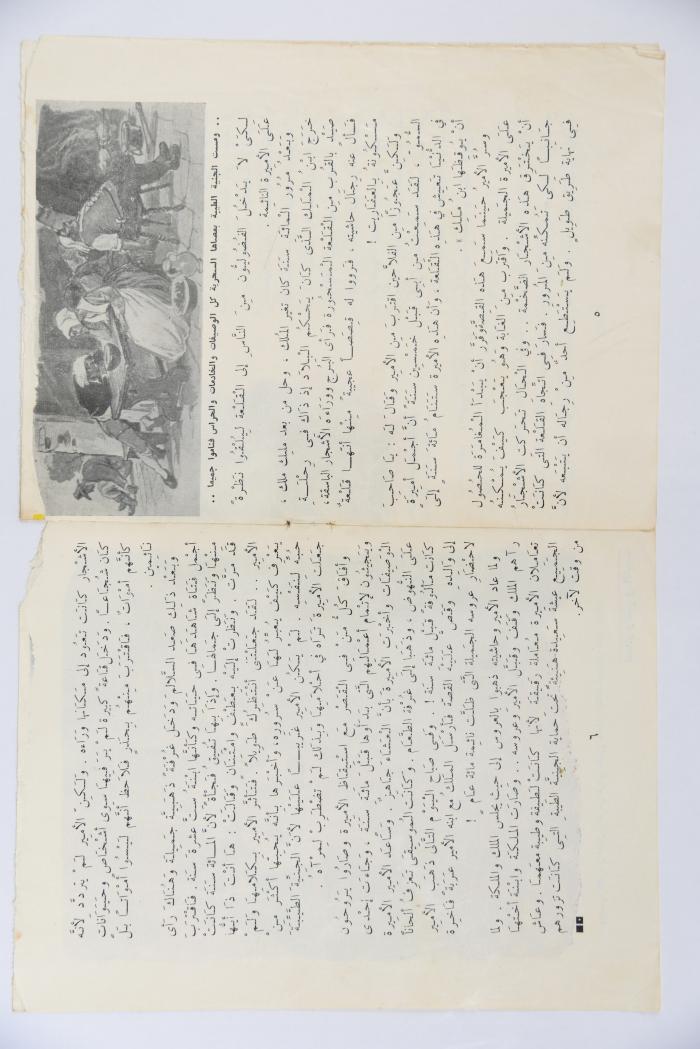 .. ومست الجنية الطيبة بعصاها السحرية كل الوصيفات والخادمات والحراس فناموا جميعا ..
لِكَىْ لا يَدْخُلَ الفُضُولِيّونَ مِنَ النَّاسِ إلى القَلْعَةِ لِيُلْقُوا نَظْرَةً
عَلَى الأَميرَةِ النَّائِمَةِ.
وَبَعْدَ مُرُورِ المائَةِ سَنَة كان تغير المُلك ، وحل من بعد ملِيك ملك ،
خَرَجَ ابنُ المَلِك الَّذى كان يَحْكُمُ البِلادَ إذ ذاكَ فى رِحْلَـة
صَيْدٍ بالقُربِ مِنَ القَلْعَةِ المَسْحُورَةِ فَرأى البُرجَ وَوَراءَه الأشجار الباسقة،
فَسأل عنه رجال حاشيته، فروَوا له قصصاً عجيبةً مِنها أنَّها قَلْعَةٌ
مَسْكُونَةٌ بالعفاريت !
ولكِن عَجوزاً من الفلاحين اقترب من الأمير وقال له : يا صاحِبَ
السمو ، لقد سمعت من أبى قبل خمسين سنة أنَّ أَجْمل أميرَة
فى الدُّنيا تعيش فى هذه القَلعة، وأن هذه الأميرة ستنام مائة سنة إلى
أن يوقِظها ابن مُلك » .
وسر الأمير حينما سمع هذه القصة وقرر أن يَبْدأ المُغامَرة للحصول
على الأميرة الجميلة . واقترب من الغابة وهو يعجب كيف يمكنه
أن يَخْترق هذه الأشجار الضخمة .. وفى الحال تحركت الأشجار
جانباً لِكى تمكنه من المرور. فسار فى اتجاه القلعة التى كانت
فى نهاية طريق طويل. ولم يستطع أحدٌ من رجاله أن يتبعه لأنَّ
٥
الأشجار كانت تعود إلى مكانها وراءه. ولكن الأمير لم يتردد لأنَّه
كان شُجاعاً . ودخل قاعة كبيرة لم ير فيها سوى أشخاص وحيوانات
كأنهم أموات ، فاقترب منهم بحذر فلاحظ أنهم ليسوا أمواتاً بل
نائمين .
وبعد ذلك صعد السلالم ودخل غرفة ذهبية جميلة وهناك رأى
أجمل فتاة شاهدها فى حياته وكأنها ابنة ست عشرة سنة. فاقترب
منها ونظر إلى جمالها . وإذا بها تفيق فجأة لأن المائة سنة كانت
قد مرت . ونظرت إليه بعطف وامتنان وقالت : ها أنت ذا أيها
الأمير .. لقد جعلتنى أنتظرك طويلاً. فتأثر الأمير بكلامها ولم
يعرف كيف يعبر لها عن سروره، وأخبرها بأنه يحبها أكثر من
حبه لنفسه . لم يكن الأمير غريبا عليها لأن الجنية الطيبة
جعلت الأميرة تراه فى أحلامها وبذلك لم تضطرب لمرآه .
وأفاق كل من فى القصر مع استيقاظ الأميرة وصاروا يروحون
ويجيئون لإتمام أعمالهم التى بدأوها قبل مائة سنة ، وجاءت إحدى
الوصيفات وأخبرت الأميرة بأن العشاء جاهز. وساعد الأمير الأميرة
على النهوض ، وذهبا إلى غرفة الطعام . وكانت الموسيقى تعزف ألحاناً
كانت مألوفة قبل مائة سنة ! وفى صباح اليوم التالى ذهب الأمير
إلى والده وقص عليه القصة فأرسل الملك مع ابنه الأمير عربة فاخرة
لإحضار عروسه الجميلة التى ظلت نائمة مائة عام !
ولما عاد الأمير وحاشيته ذهبوا بالعروس إلى حيث يجلس الملك والملكة ولما
رآهم الملك وقف وقبل الأمير وعروسه .. وصارت الملكة وابنة أختها
تعاملان الأميرة معاملة رقيقة لأنها كانت لطيفة وطيبة معهما . وعاش
الجميع عيشة سعيدة هنيئة تحت حماية الجنية الطيبة التى كانت تزورهم
من وقت لآخر.
٦